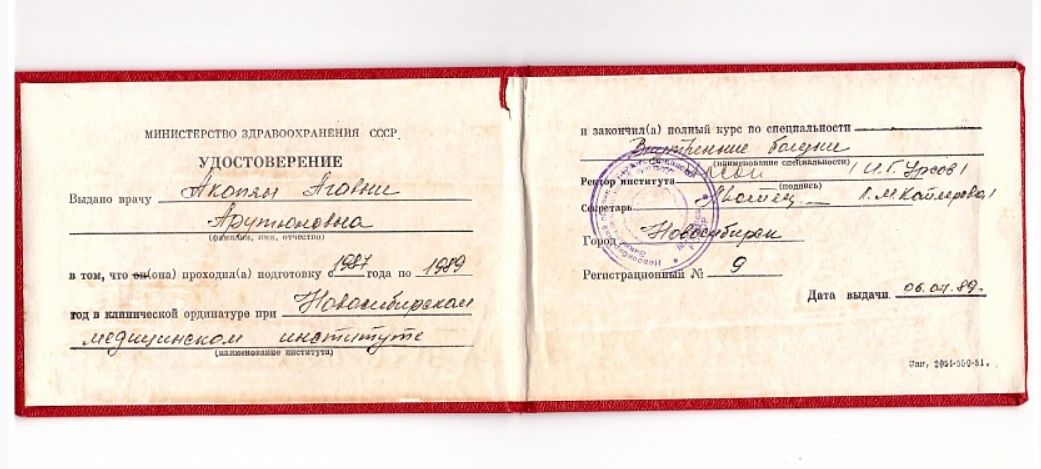 МИНИСТЕРСТВО ЗДРАВООХРАНЕНИЯ СССР
УДОСТОВЕРЕНИЕ
Выдано врачу Акопян Агавни
Арутюновна
(фамилия, имя, отчество)
в том, что он(она) проходил(а) подготовку с 1987 года по 1989
год в клинической ординатуре при Новосибирском
медицинском институте
(наименование института)
и закончил(а) полный курс по специальности
Внутренние болезни
(наименование специальности)
Ректор института И.Г. Урсов
(подпись)
Секретарь
Город Новосибирск
Регистрационный № 9
Дата выдачи
Зак.